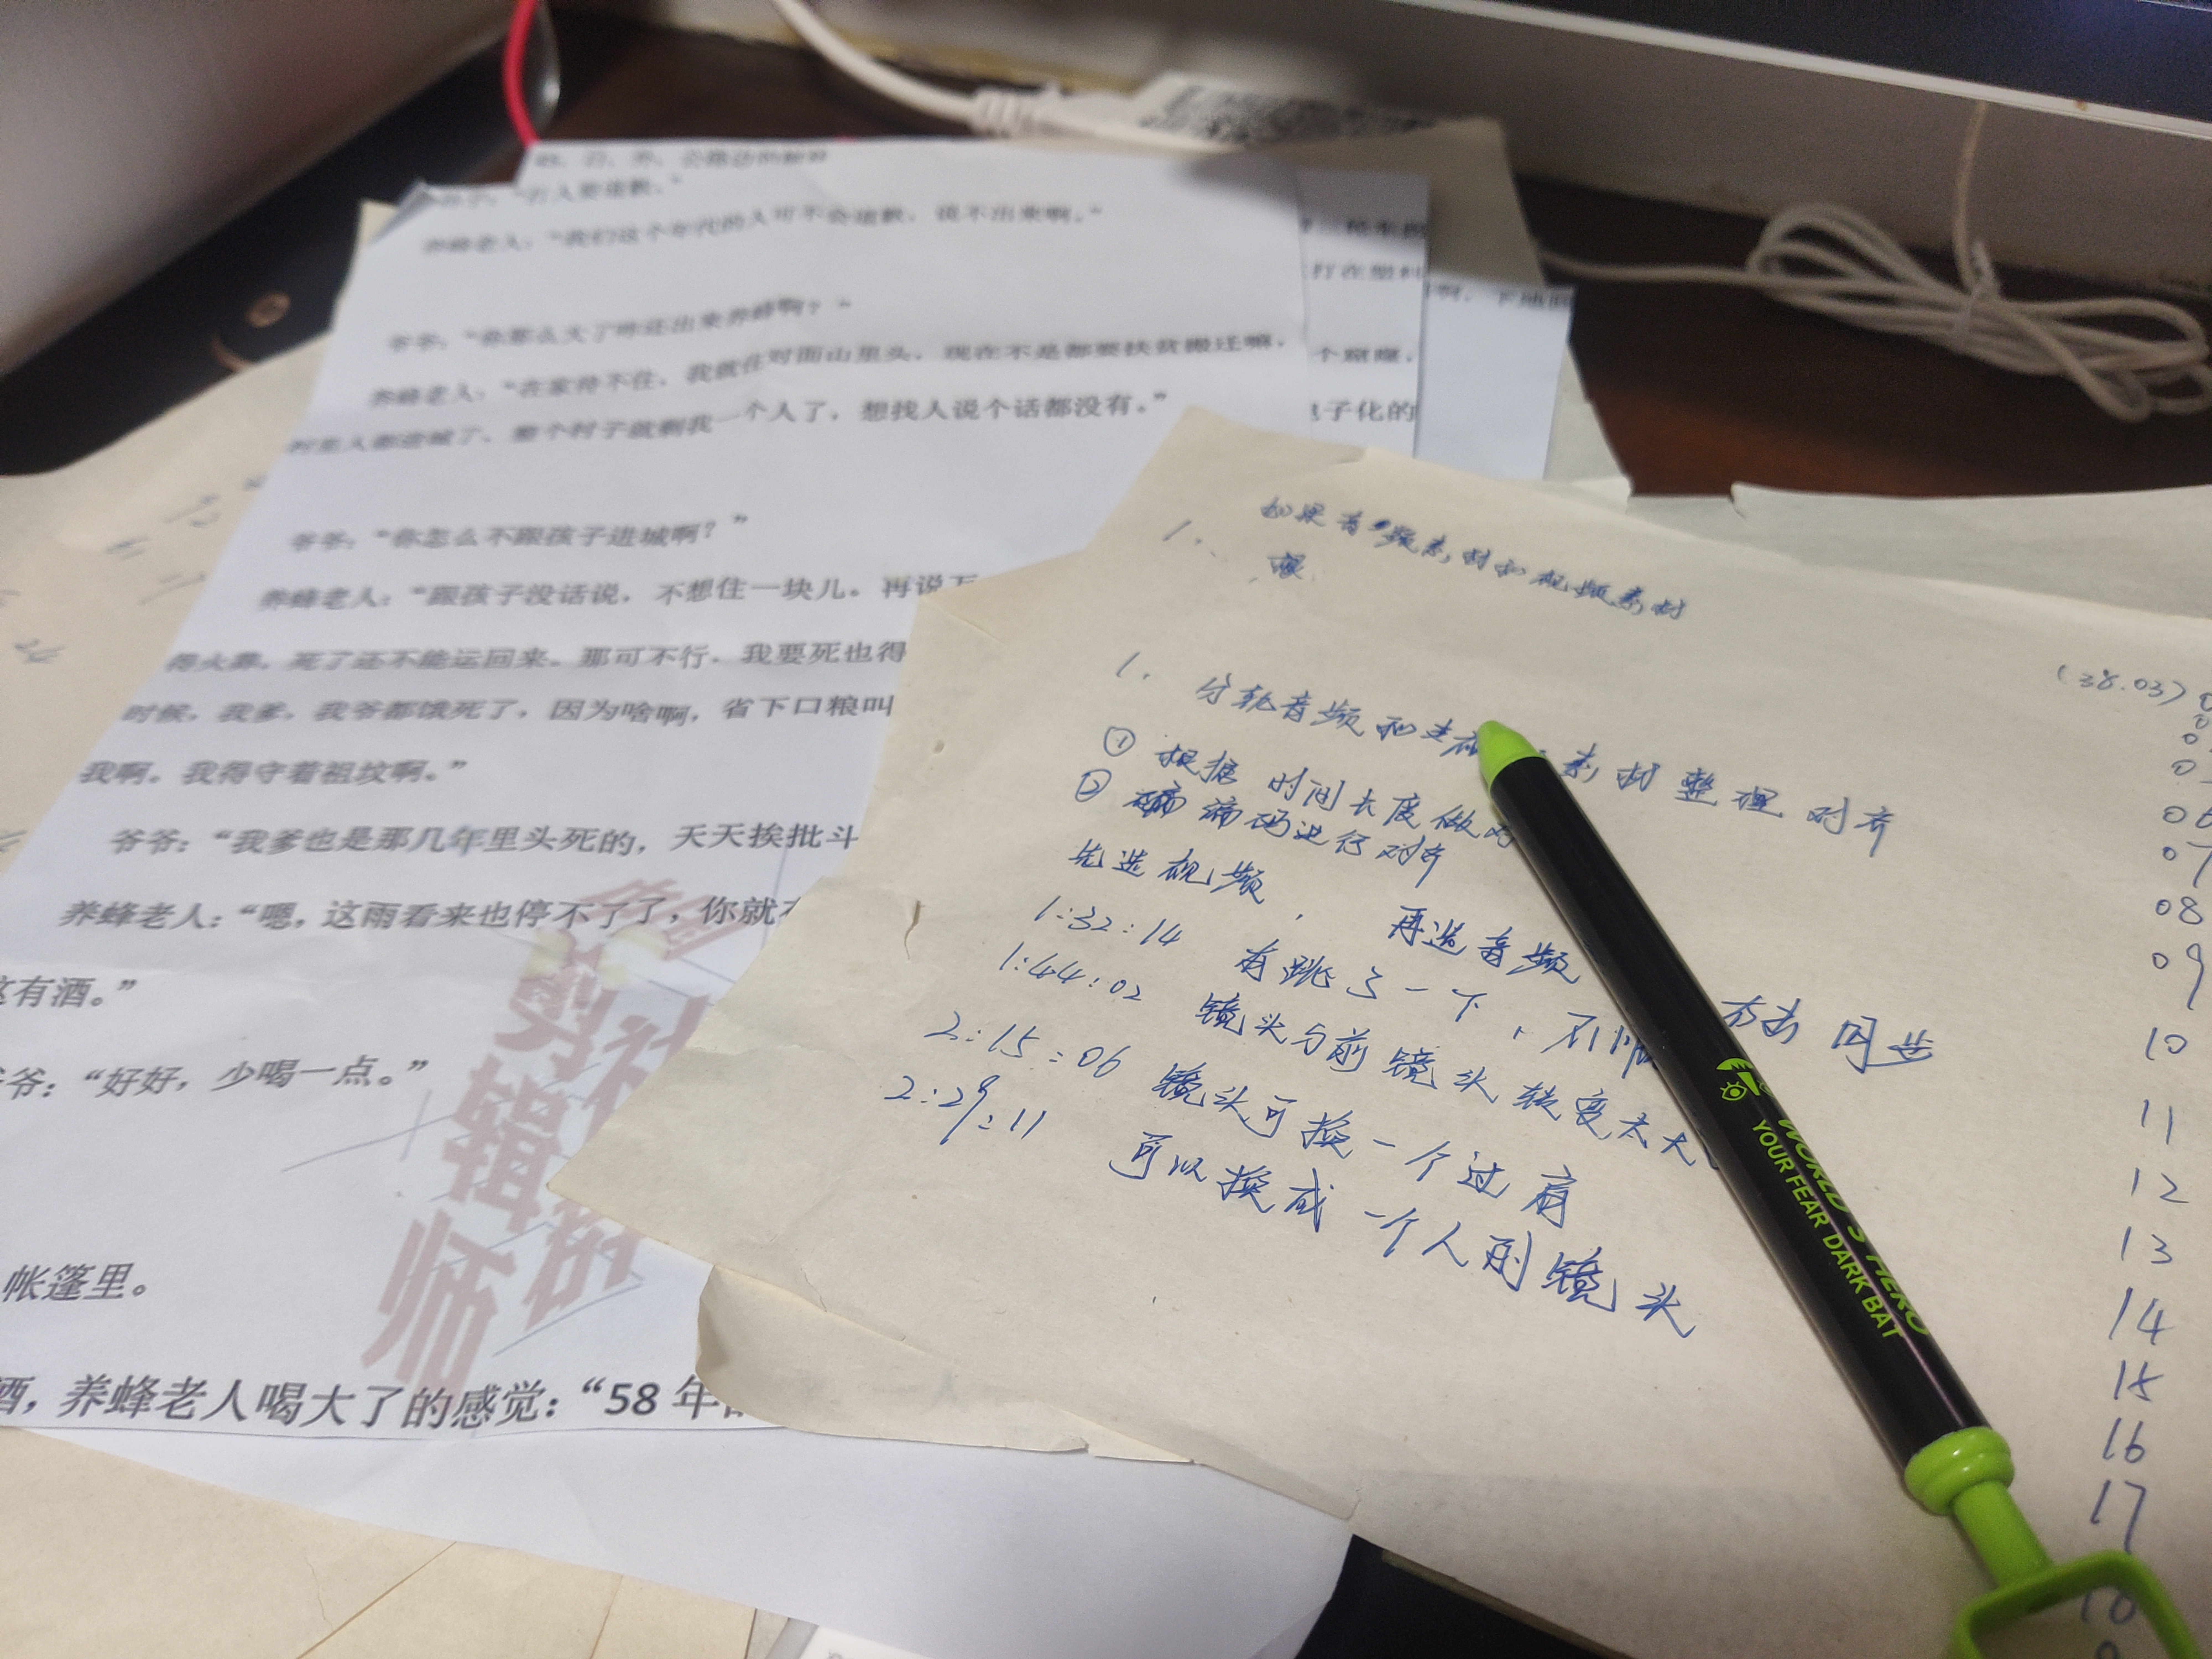 养蜂老人：“我们这个年代的人可不会道歉，说不出来啊。”
爷爷：“你那么大了咋还出来养蜂啊？”
养蜂老人：“在家待不住，我就住对面山里头，现在不是都要扶贫搬迁嘛，
村里人都进城了，整个村子就剩我一个人了，想找人说个话都没有。”
爷爷：“你怎么不跟孩子进城啊？”
养蜂老人：“跟孩子没话说，不想住一块儿。再说
得火葬，死了还不能运回来。那可不行，我要死也得
时候，我爹，我爷都饿死了，因为啥啊，省下口粮叫
我啊。我得守着祖坟啊。”
爷爷：“我爹也是那几年里头死的，天天挨批斗
养蜂老人：“嗯，这雨看来也停不了了，你就
这有酒。”
爷：“好好，少喝一点。”
帐篷里。
酒，养蜂老人喝大了的感觉：“58 年
剪辑师
社群
打在塑料
电子化的
如果音频素材和视频素材
1.
1. 分轨音频和 素材整理对齐
① 根据时间长度做
② 码进行对齐
先选视频， 再选音频 右击 同步
1:32:14 有跳了一下，不顺
1:44:02 镜头与前镜头转变太大
2:15:06 镜头可换一个过肩
2:29:11 可以换成一个人的镜头
(38.03)
06
07
08
09
10
11
12
13
14
15
16
17
WORLD'S HERO
YOUR FEAR DARK BAT